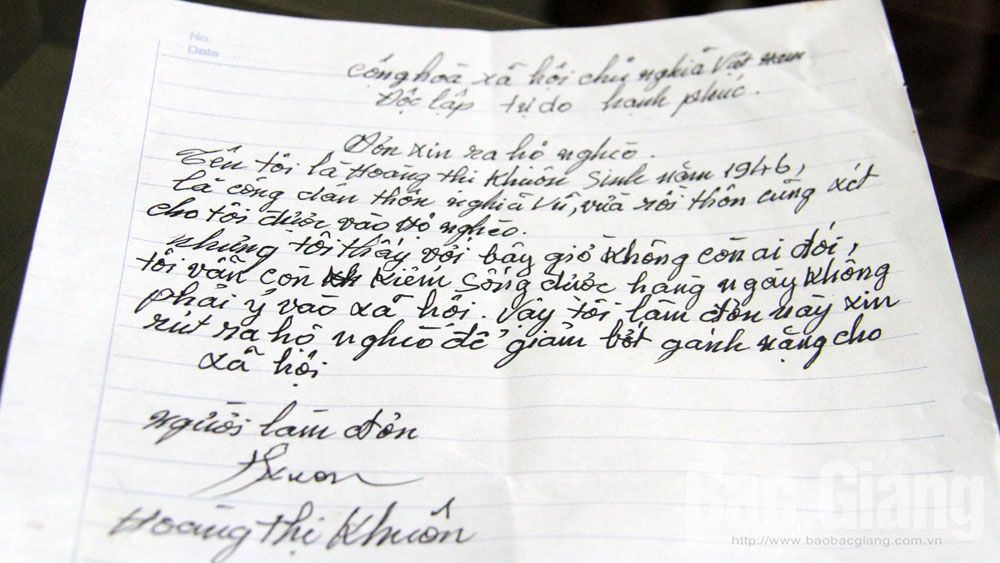 No. ........
Date ........
Cộng hoà xã hội chủ nghĩa Việt Nam
Độc lập tự do hạnh phúc.
Đơn xin ra hộ nghèo.
Tên tôi là Hoàng Thị Khuôn Sinh năm 1946,
là công dân thôn nghĩa Vũ, vừa rồi thôn cũng xét
cho tôi được vào hộ nghèo.
nhưng tôi thấy với bây giờ không còn ai đói,
tôi vẫn còn kiếm sống được hàng ngày không
phải ỷ vào xã hội. vậy tôi làm đơn này xin
rút ra hộ nghèo để giảm bớt gánh nặng cho
xã hội
người làm đơn
Khuôn
Hoàng Thị Khuôn
Bac Giang
http://www.baobacgiang.com.vn